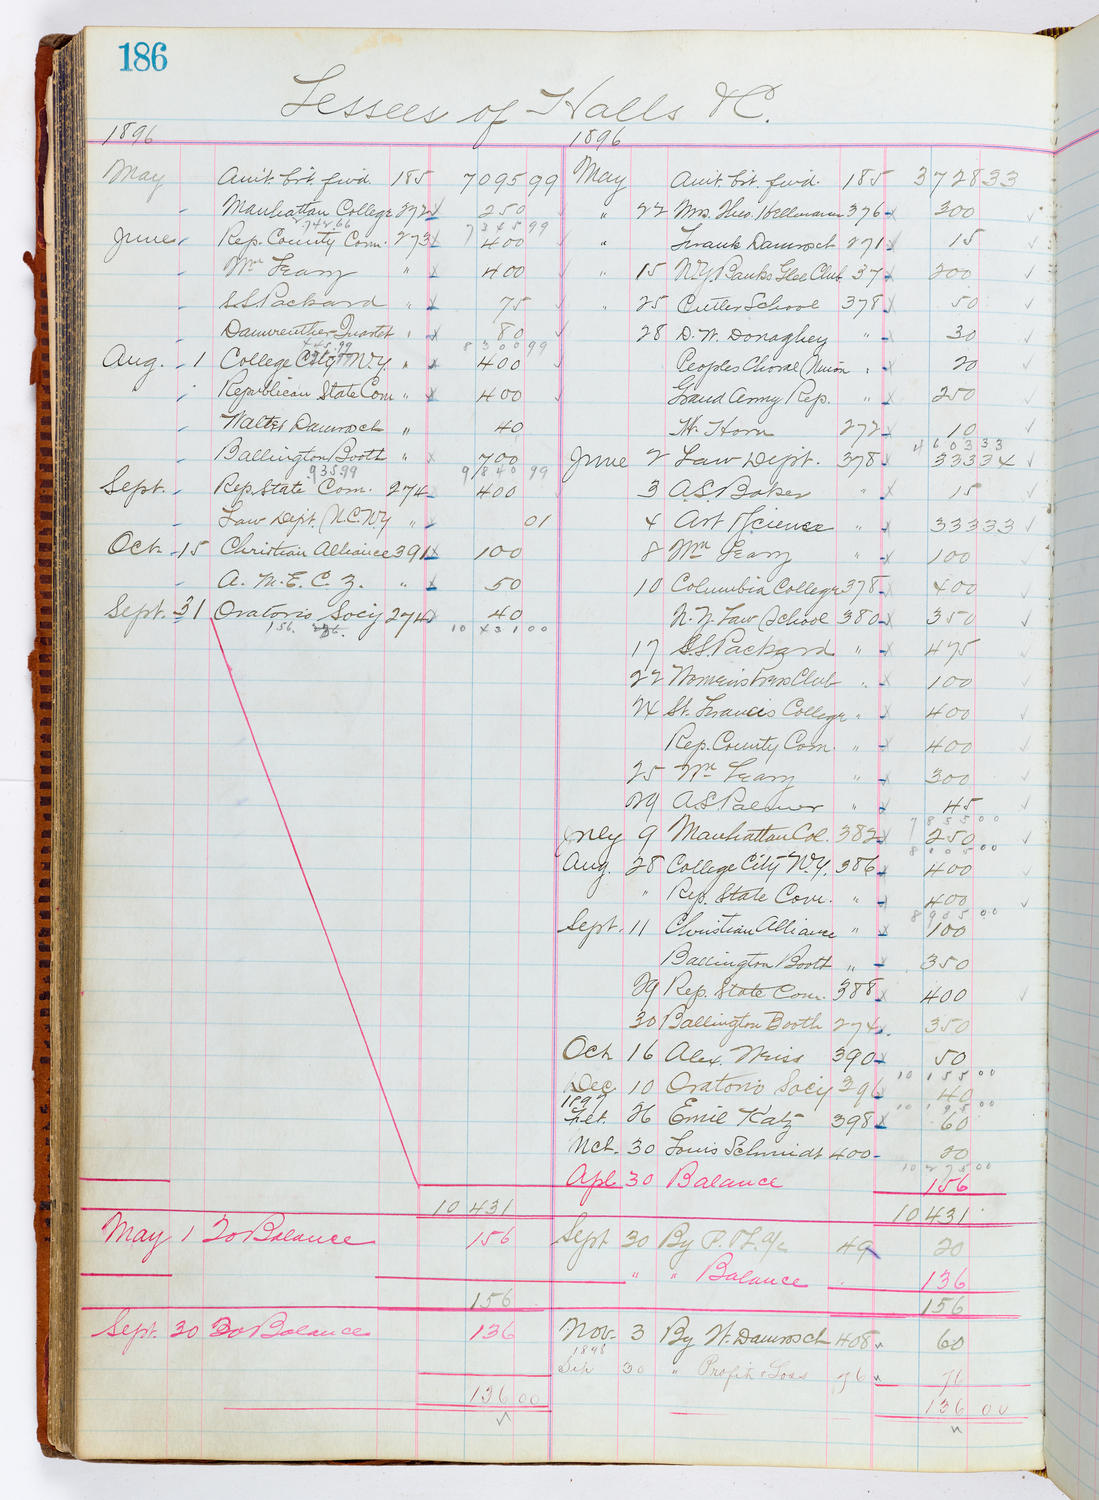 186
Lessees of Halls &C.
1896
May Amt. brt. fwd. 185 7095 99
Manhattan College 272 250
742.66 7345 99
June Rep. County Com. 273 400
Wm Leary " 400
S.S. Packard " 75
Damreuther Quartet " 80
445.99 8300 99
Aug. 1 College City N.Y. " 400
Republican State Com " 400
Walter Damrosch " 40
Ballington Booth " 700
935.99 9840 99
Sept. Rep. State Com. 274 400
Law Dept. N.C.N.Y. " 01
Oct 15 Christian Alliance 391 100
A. M. E. C. Z. " 50
Sept. 31 Oratorio Socy 274 40
156. 10431 00
10431
May 1 To Balance 156
156
Sept. 30 To Balance 136
136 00
1896
May Amt. brt. fwd. 185 3728 33
" 22 Mrs. Theo. Hellman 376 300
" Frank Damrosch 271 15
" 15 N.Y. Banks Glee Club 37 200
" 25 Cutler School 378 50
28 D. W. Donaghey " 30
Peoples Choral Union " 20
Grand Army Rep. " 250
H. Horn 272 10
4603 33
June 2 Law Dept. 378 333 34
3 A S Baker " 15
4 Art & Science " 333 33
8 Wm Leary " 100
10 Columbia College 378 400
N.Y. Law School 380 350
17 S.S. Packard " 475
22 Womens Press Club " 100
24 St. Francis College " 400
Rep. County Com. " 400
25 Wm Leary " 300
29 A S Palmer " 45
7855 00
July 9 Manhattan Col. 382 250
8005 00
Aug. 28 College City N.Y. 386 400
" Rep. State Com. " 400
8905 00
Sept. 11 Christian Alliance " 100
Ballington Booth " 350
29 Rep. State Com. 388 400
30 Ballington Booth 274 350
Oct 16 Alex. Weiss 390 50
10155 00
Dec 10 Oratorio Socy 396 40
1897 10195 00
Feb. 26 Emil Katz 398 60
Mch. 30 Louis Schmidt 400 20
10275 00
Apl 30 Balance 156
10431
Sept 30 By P. & L. a/c 49 20
" " Balance 136
156
Nov. 3 By W. Damrosch 408 60
1898
Sep 30 " Profit & Loss 76 76
136 00